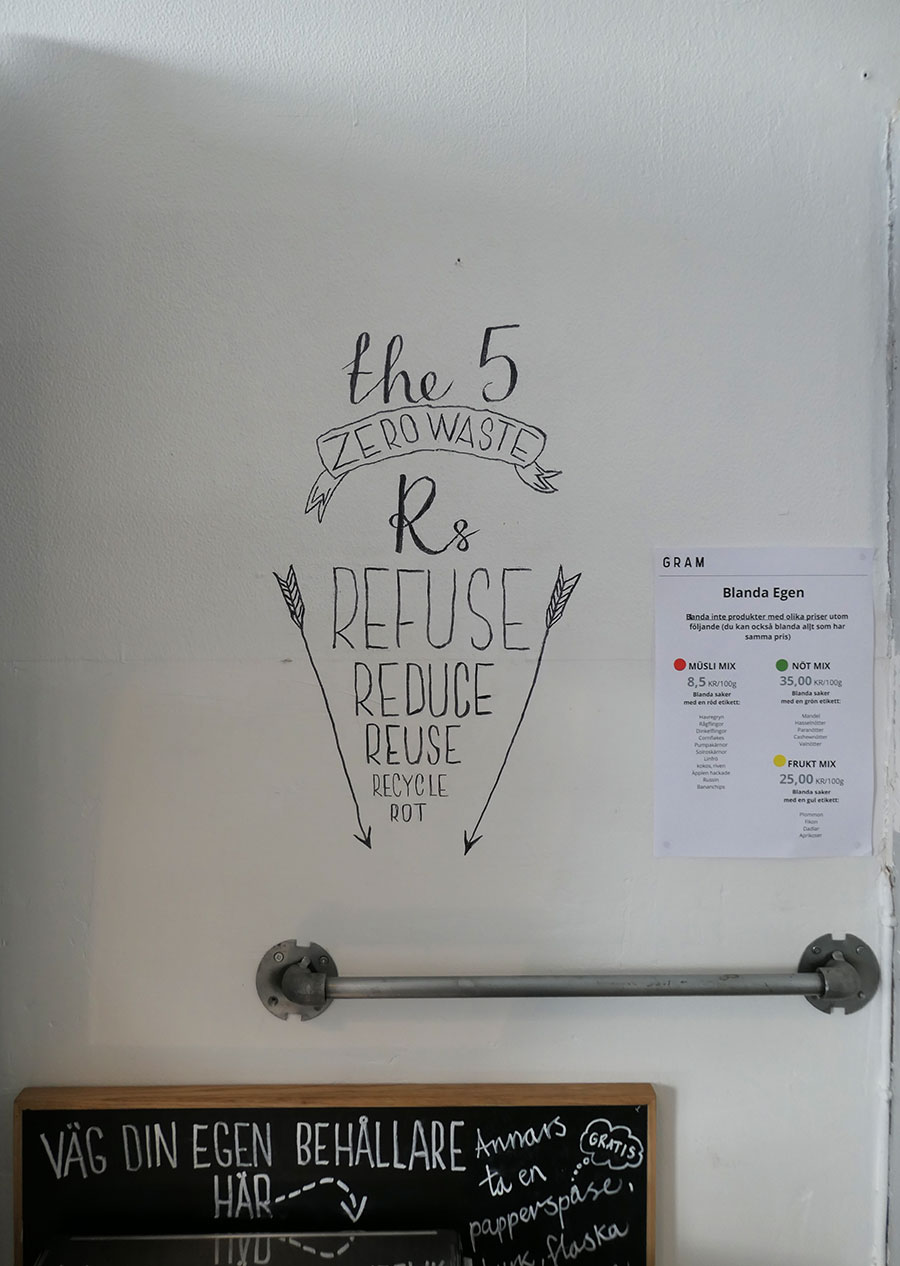 the 5
ZERO WASTE
Rs
REFUSE
REDUCE
REUSE
RECYCLE
ROT
GRAM
Blanda Egen
Blanda inte produkter med olika priser utom
följande (du kan också blanda allt som har
samma pris)
MÜSLI MIX
8,5 KR/100g
Blanda saker
med en röd etikett:
Havregryn
Rågflingor
Dinkelflingor
Cornflakes
Pumpakärnor
Solroskärnor
Linfrö
kokos, riven
Äpplen hackade
Russin
Bananchips
NÖT MIX
35,00 KR/100g
Blanda saker
med en grön etikett:
Mandel
Hasselnötter
Paranötter
Cashewnötter
Valnötter
FRUKT MIX
25,00 KR/100g
Blanda saker
med en gul etikett:
Plommon
Fikon
Dadlar
Aprikoser
VÄG DIN EGEN BEHÅLLARE
HÄR
Annars
ta en
papperspåse,
flaska
GRATIS